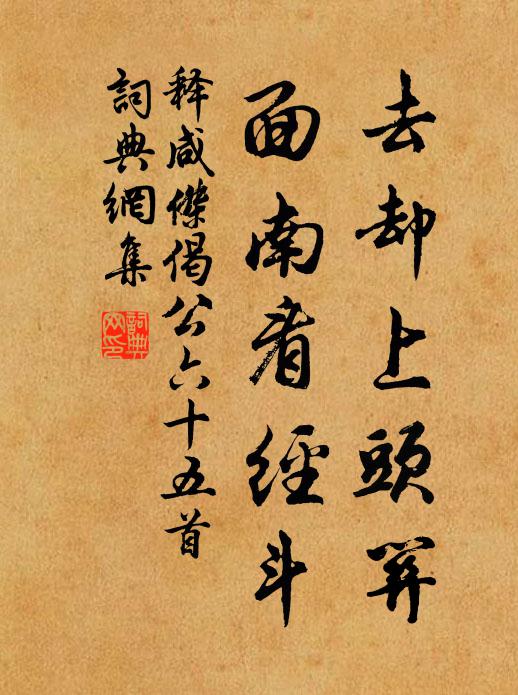 去却上頭
面南看經斗
释咸傑偈公六十五首
詞典網集
詞典网印